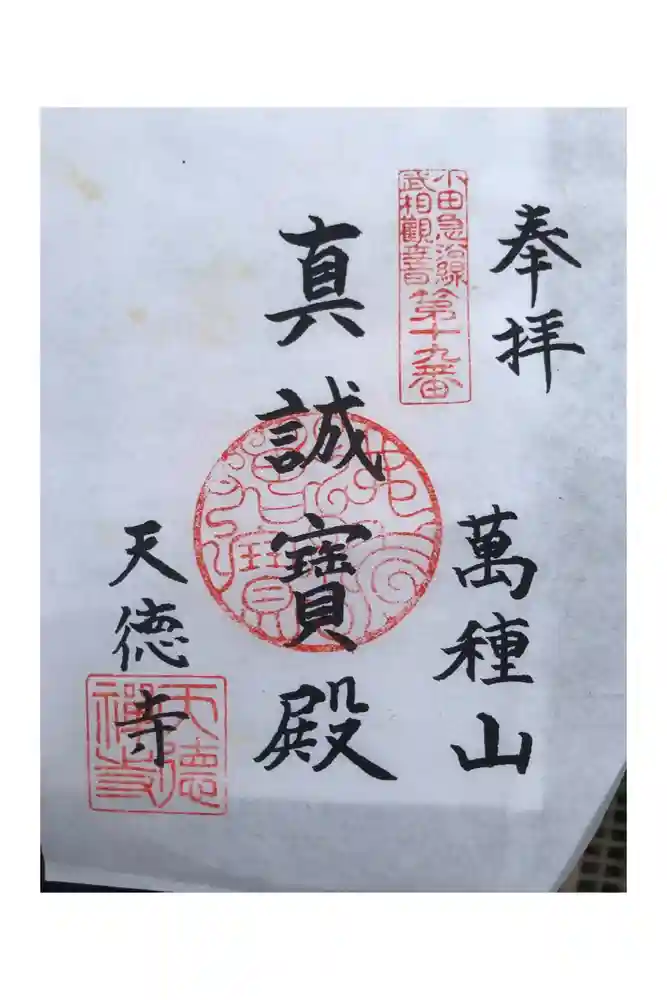 奉拝
萬種山
小田急沿線
武相觀音
第十九番
真誠寳殿
天徳寺
天德
禅寺